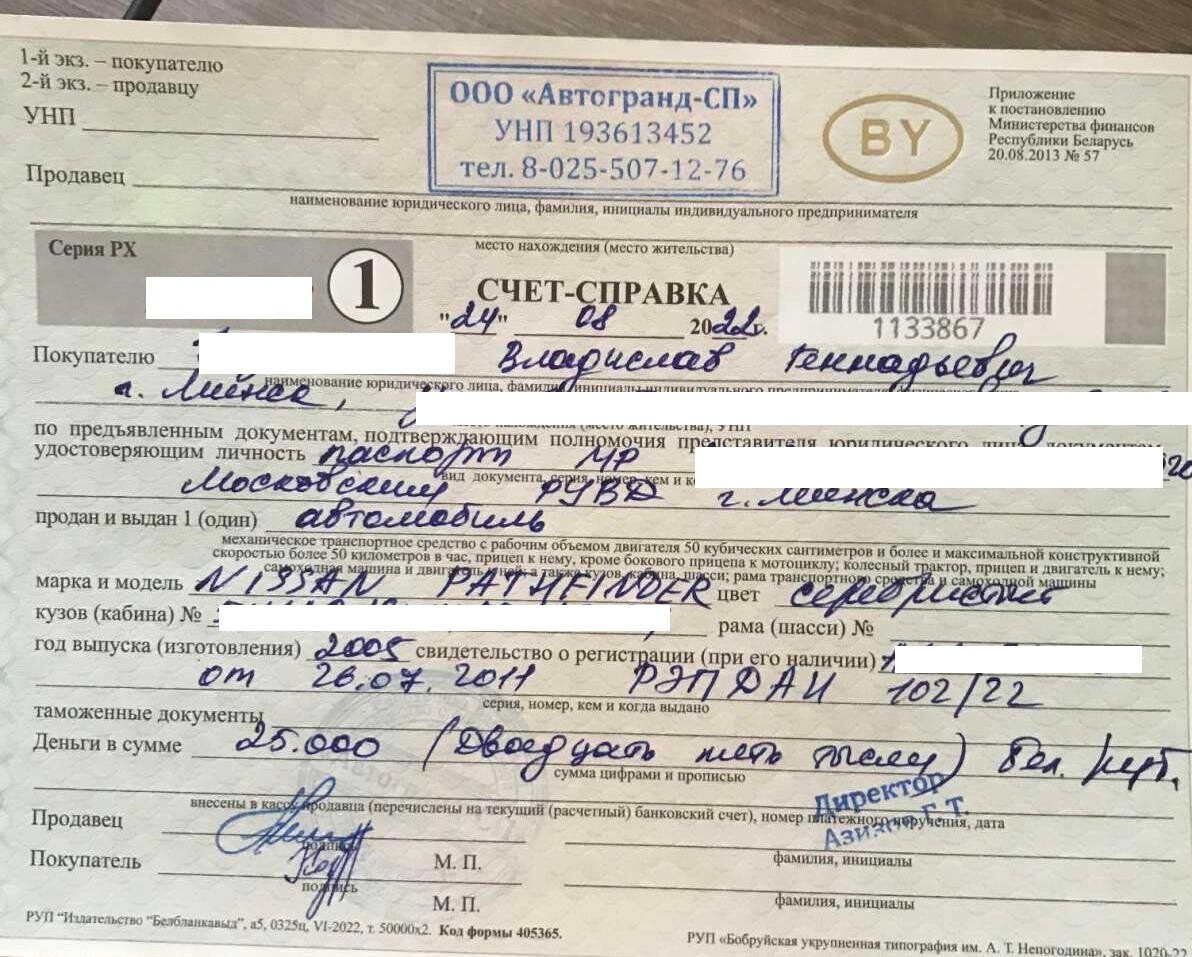 1-й экз. – покупателю
2-й экз. – продавцу
УНП
ООО «Автогранд-СП»
УНП 193613452
тел. 8-025-507-12-76
BY
Приложение
к постановлению
Министерства финансов
Республики Беларусь
20.08.2013 № 57
Продавец
наименование юридического лица, фамилия, инициалы индивидуального предпринимателя
место нахождения (место жительства)
Серия РХ
1
СЧЕТ-СПРАВКА
"24" 08 2022г.
1133867
Покупателю Владислав Геннадьевич
наименование юридического лица, фамилия, инициалы индивидуального
г. Минск,
(место жительства), УНП
по предъявленным документам, подтверждающим полномочия представителя юридического лица, документам,
удостоверяющим личность паспорт МР
вид документа, серия, номер, кем и
Московским РУВД г. Минска
продан и выдан 1 (один) автомобиль
механическое транспортное средство с рабочим объемом двигателя 50 кубических сантиметров и более и максимальной конструктивной
скоростью более 50 километров в час, прицеп к нему, кроме бокового прицепа к мотоциклу; колесный трактор, прицеп и двигатель к нему;
самоходная машина и двигатель к ней; а также кузов, кабина, шасси; рама транспортного средства и самоходной машины
марка и модель NISSAN PATHFINDER цвет серебристый
кузов (кабина) № рама (шасси) №
год выпуска (изготовления) 2005 свидетельство о регистрации (при его наличии)
от 26.07.2011 РЭП ДАИ 102/22
серия, номер, кем и когда выдано
таможенные документы
Деньги в сумме 25.000 (Двадцать пять тысяч) бел. руб.
сумма цифрами и прописью
внесены в кассу продавца (перечислены на текущий (расчетный) банковский счет), номер платежного поручения, дата
Директор
Продавец
подпись
М. П.
фамилия, инициалы
Покупатель
подпись
М. П.
фамилия, инициалы
РУП “Издательство “Белбланкавыд”, а5, 0325ц, VI-2022, т. 50000х2. Код формы 405365.
РУП «Бобруйская укрупненная типография им. А. Т. Непогодина», зак. 1020-22